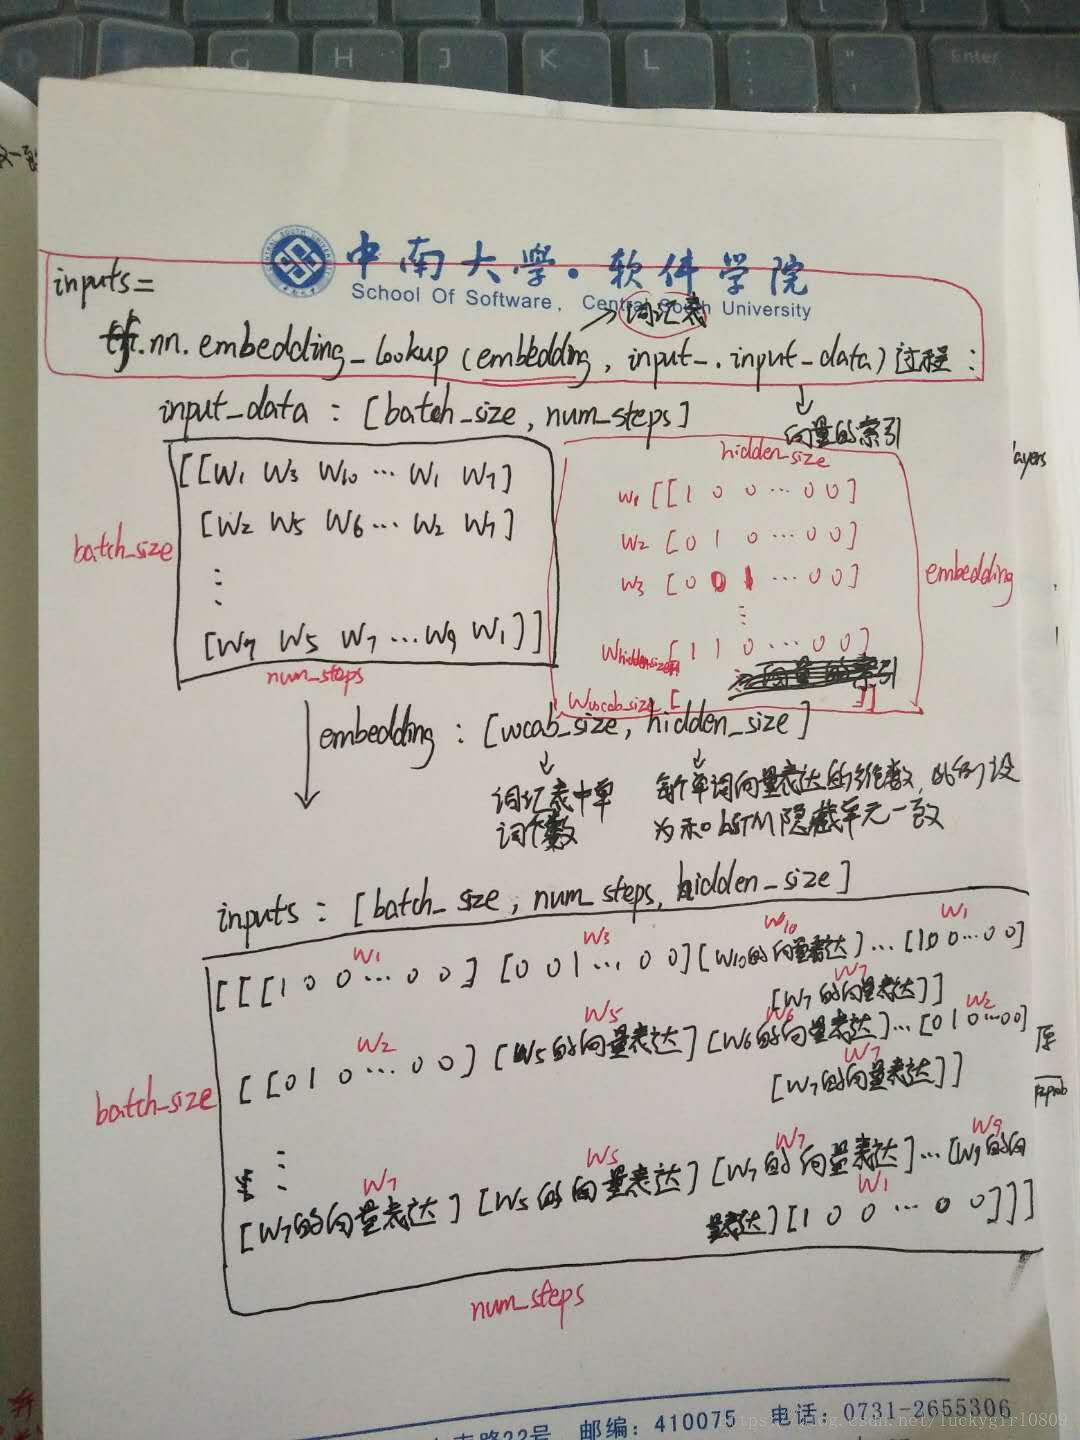 G H J K L : ; " ' Enter
中南大学·软件学院
School Of Software, Central South University
inputs=
词汇表
tf.nn.embedding_lookup(embedding, input_.input_data)过程:
input_data : [batch_size, num_steps]
向量的索引
layers
hidden_size
[[W1 W3 W10 ... W1 W7]
w1 [[1 0 0 ... 0 0]
[W2 W5 W6 ... W2 W7]
w2 [0 1 0 ... 0 0]
batch_size
w3 [0 0 1 ... 0 0]
embedding
⋮
⋮
[W7 W5 W7 ... W9 W1]]
Whiddensize [1 1 0 ... 0 0]
num_steps
向量的索引
Wvocab_size [ ]]
embedding : [vocab_size, hidden_size]
词汇表中单
词个数
每个单词向量表达的维数, 此例设
为和LSTM隐藏单元一致
inputs : [batch_size, num_steps, hidden_size]
W1 W3 W10 W1
[[[1 0 0 ... 0 0] [0 0 1 ... 0 0] [W10的向量表达] ... [1 0 0 ... 0 0]
W7
[W7的向量表达]]
W2 W5 W6 W2
[[0 1 0 ... 0 0] [W5的向量表达] [W6的向量表达] ... [0 1 0 ... 0 0]
W7
[W7的向量表达]]
batch_size
⋮
W7 W5 W7 W9
[W7的向量表达] [W5的向量表达] [W7的向量表达] ... [W9的向
W1
量表达] [1 0 0 ... 0 0]]]
num_steps
22号 邮编: 410075 电话: 0731-2655306
blog.csdn.net/luckygirl0809